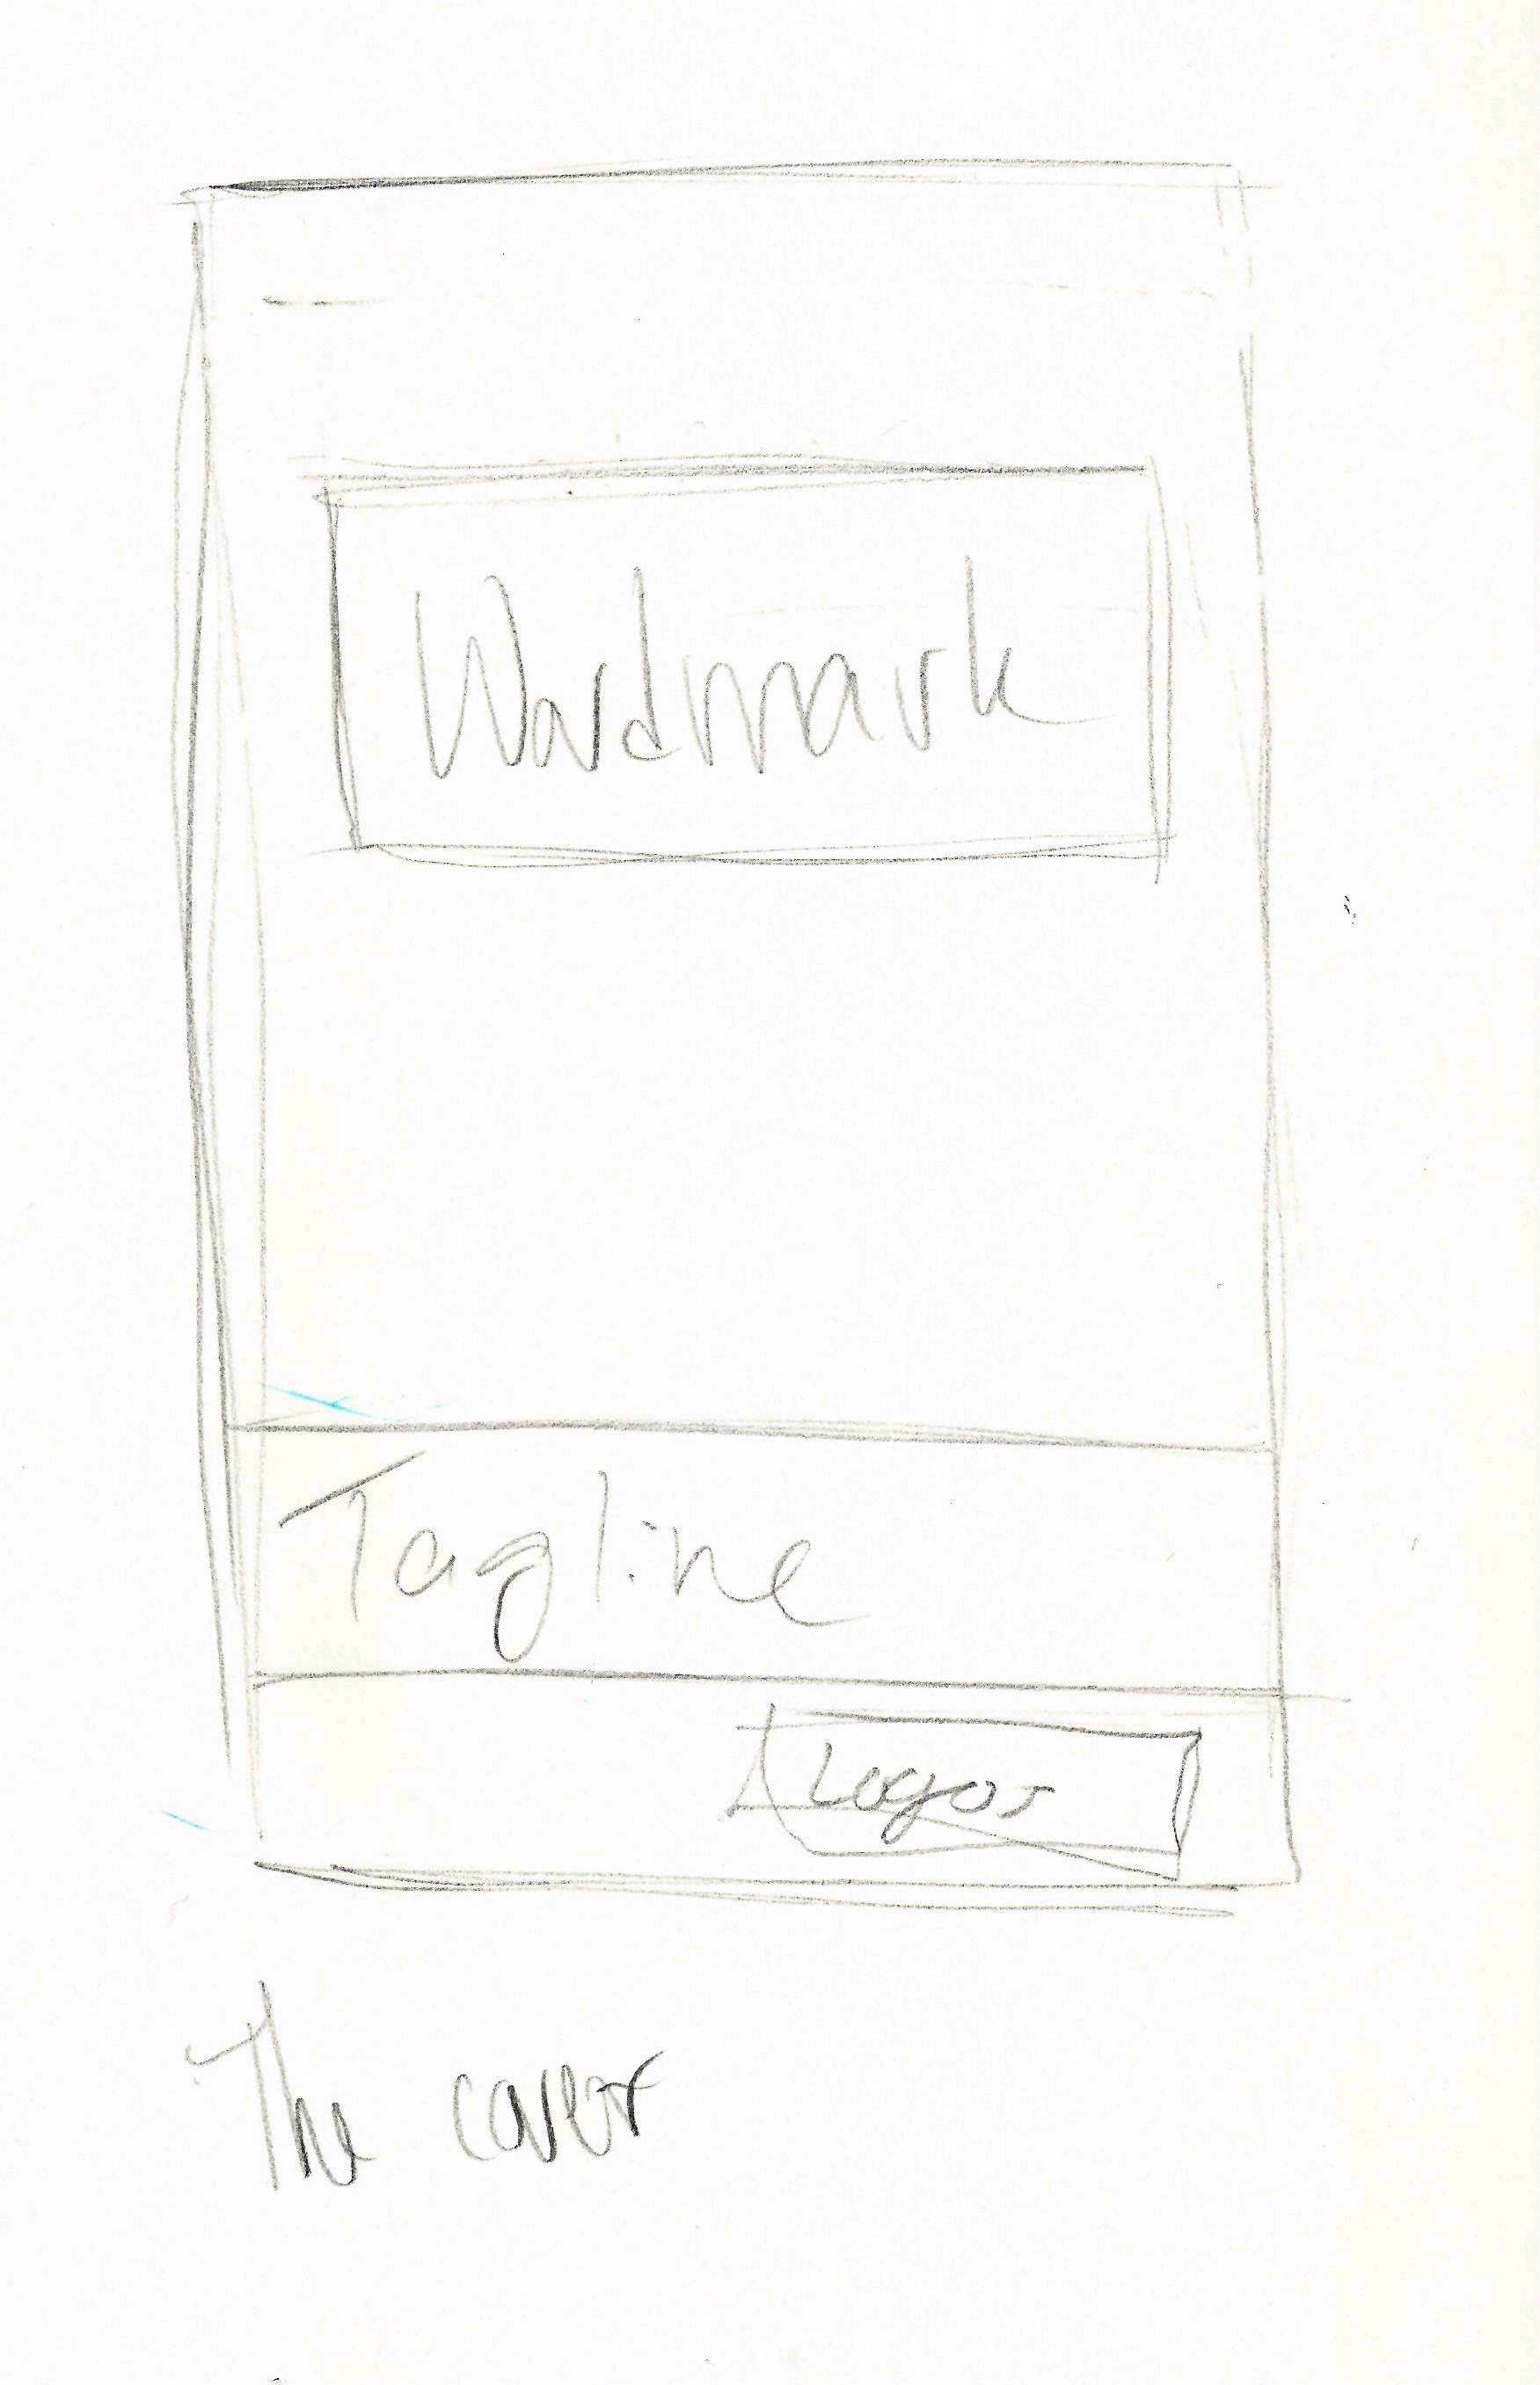 Wordmark
Tagline
Logos
The cover